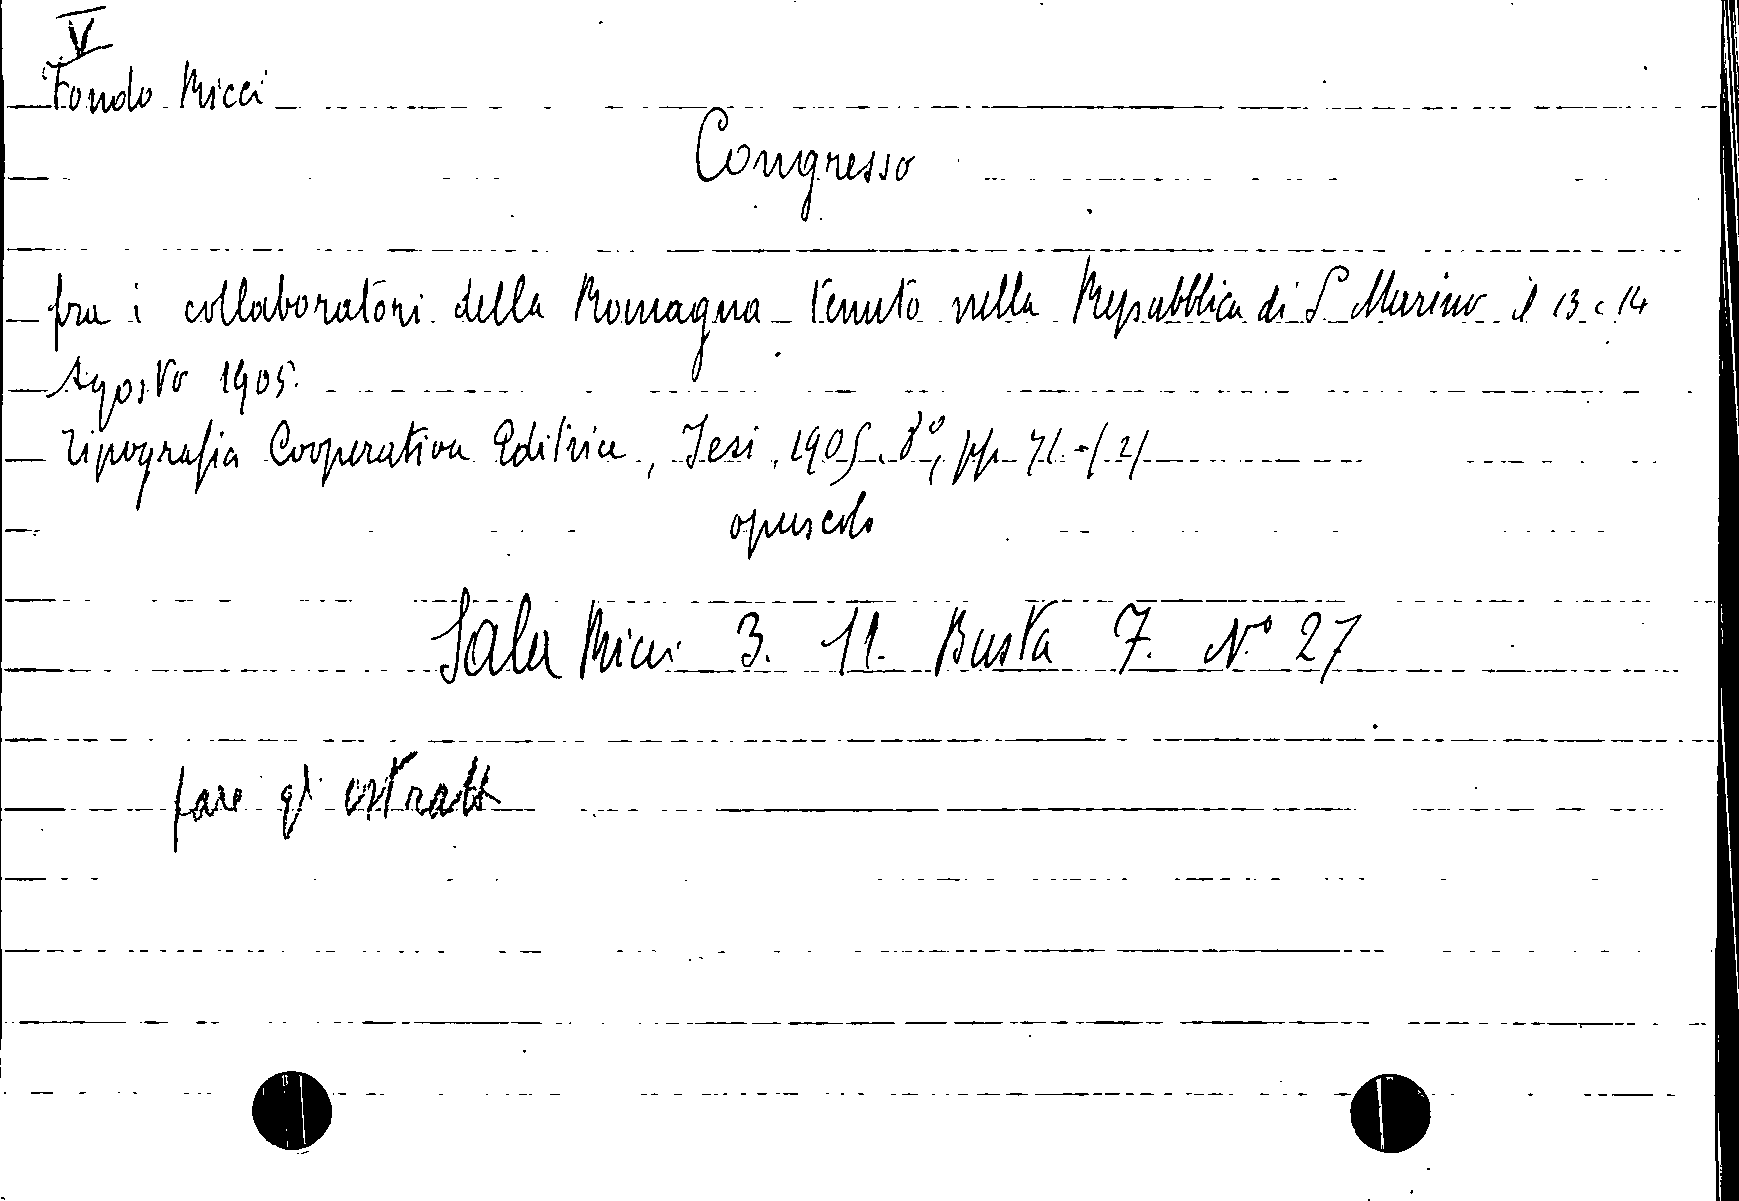 V
Fondo Ricci
Congresso
fra i collaboratori della Romagna tenuto nella Repubblica di S. Marino il 13 e 14
Agosto 1905.
Tipografia Cooperativa Editrice, Jesi, 1905. 8°, pp.
opuscolo
Sala Ricci 3. 11. Busta 7. N° 27
fare gl' estratti